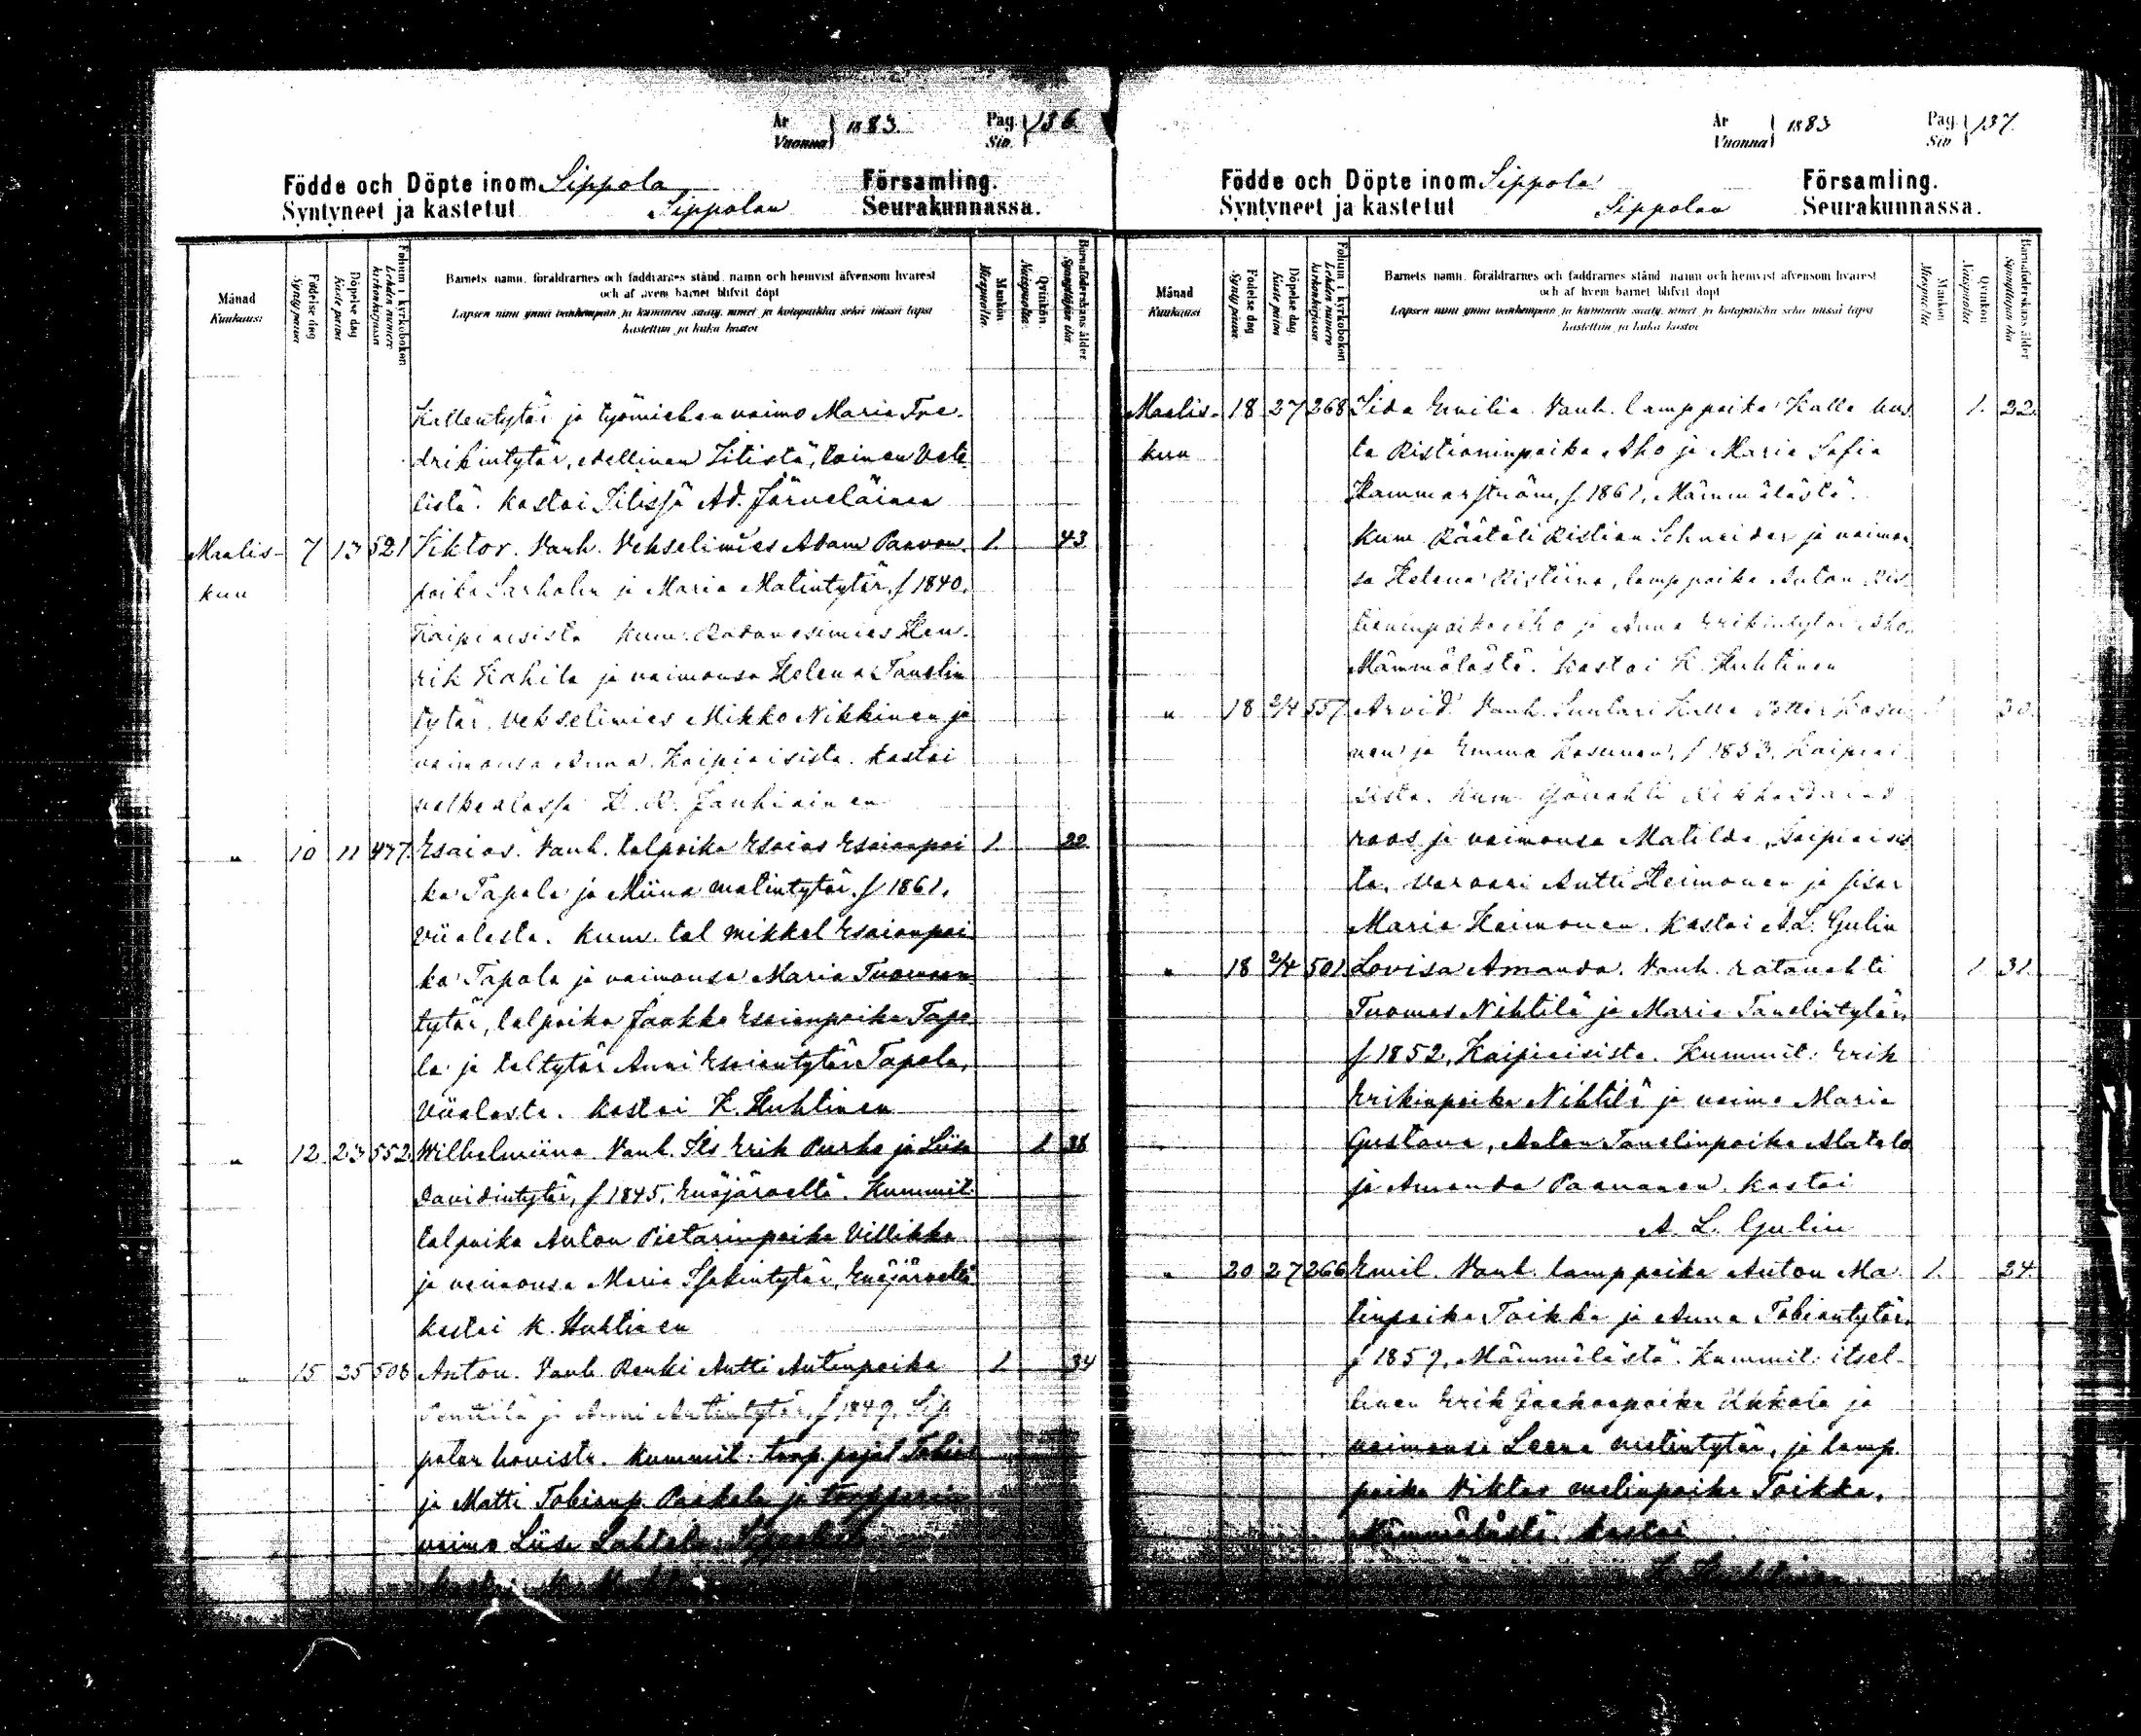 År
Vuonna 1883. Pag. Siv. 136
Födde och Döpte inom Sippola Församling.
Syntyneet ja kastetut Sippolan Seurakunnassa.
Månad
Kuukausi
Födelse dag
Synty päivä
Döpelse dag
Kaste päivä
Folium i kyrkoboken
Lehden numero kirkonkirjassa
Barnets namn, föräldrarnes och faddrarnes stånd, namn och hemvist äfvensom hvarest
och af hvem barnet blifvit döpt
Lapsen nimi ynnä vanhempain ja kummein sääty, nimet ja kotopaikka sekä missä lapsi
kastettiin ja kuka kastoi
Mankön
Miespuolia
Qvinkön
Naispuolia
Barnaföderskans ålder
Synnyttäjän ikä
Kallentytär ja työmiehen vaimo Maria Fre-
drikintytär, edellinen Iitistä, toinen Vete
listä. Kastoi Iitissä Ad. Järveläinen
Maalis- 7 13 521 Viktor. Vanh. Vekselimies Adam Paavon- 1. 43
kuu poika Sarholm ja Maria Matintytär, f 1840.
Kaipiaisista Kum. Ratavesimies Hen-
rik Kahila ja vaimonsa Helena Tanelin
tytär. Vekselimies Mikko Nikkinen ja
vaimonsa Anna. Kaipiaisista. Kastoi
valkealassa K. R. Jauhiainen
" 10 11 477 Esaias. Vanh. talpoika Esaias Esaianpoi 1. 22
ka Tapola ja Miina Matintytär, f 1861.
Viialasta. Kum. tal Mikkel Esaianpoi
ka Tapola ja vaimonsa Maria Tuomaan
tytär, talpoika Jaakko Esaianpoika Tapo
la ja taltytär Anni Esaiantytär Tapola,
Viialasta. Kastoi K. Huhtinen
" 12 23 552 Wilhelmiina Vanh. Its Erik Purho ja Liisa 1 38
Davidintytär, f 1845. Enäjärveltä. Kummit:
talpoika Anton Pietarinpoika Villikka
ja vaimonsa Maria Isakintytär, Enäjärveltä
Kastoi K. Huhtinen
" 15 25 508 Anton. Vanh Renki Antti Antinpoika 1 34
Penttilä ja Anni Antintytär, f 1849. Sip
polan hovista. Kummit: torp. pojat Tobias
ja Matti Tobianp. Paakola ja torpparin
vaimo Liisa Lahtela
Kastoi K. Huhtinen
År
Vuonna 1883 Pag. Siv 137.
Födde och Döpte inom Sippola Församling.
Syntyneet ja kastetut Sippolan Seurakunnassa.
Månad
Kuukausi
Födelse dag
Synty päivä
Döpelse dag
Kaste päivä
Folium i kyrkoboken
Lehden numero kirkonkirjassa
Barnets namn, föräldrarnes och faddrarnes stånd, namn och hemvist äfvensom hvarest
och af hvem barnet blifvit döpt
Lapsen nimi ynnä vanhempain ja kummein sääty, nimet ja kotopaikka sekä missä lapsi
kastettiin ja kuka kastoi
Mankön
Miespuolia
Qvinkön
Naispuolia
Barnaföderskans ålder
Synnyttäjän ikä
Maalis- 18 27 268 Iida Emilia. Vanh. lamppoika Kalle Kus 1. 22.
kuu ta Ristianinpoika Aho ja Maria Sofia
Hammarström, f 1861, Mämmälästä.
Kum Räätäli Ristian Schneider ja vaimon
sa Helena Ristiina, lamppoika Anton Ris
tianinpoika Aho ja Anna Erikintytär Aho.
Mämmälästä. Kastoi K. Huhtinen
" 18 2/4 557 Arvid. Vanh. Suutari Kalle Petter Kosu 1 30.
nen ja Emma Kosunen, f 1853. Kaipiai
sista. Kum.
roos ja vaimonsa Matilda, Kaipiaisis
ta, Varvari Antti Heimonen ja sisar
Maria Heimonen. Kastoi A.L. Gulin
" 18 2/4 501. Lovisa Amanda. Vanh. ratavahti 1 31.
Tuomas Nihtilä ja Maria Tanelintytär,
f 1852, Kaipiaisista. Kummit: Erik
Erikinpoika Nihtilä ja vaimo Maria
Gustava, Anton Tanelinpoika Alatalo
ja Amanda Paananen. Kastoi
A. L. Gulin
" 20 27 266 Emil. Vanh. lamppoika Anton Ma 1. 24.
tinpoika Toikka ja Anna Tobiantytär,
f 1859. Mämmälästä. Kummit: itsel-
linen Erik Jaakonpoika Ukkola ja
vaimonsa Leena Matintytär, ja lamp.
poika Viktor Matinpoika Toikka,
Mämmälästä. Kastoi
K. Huhtinen